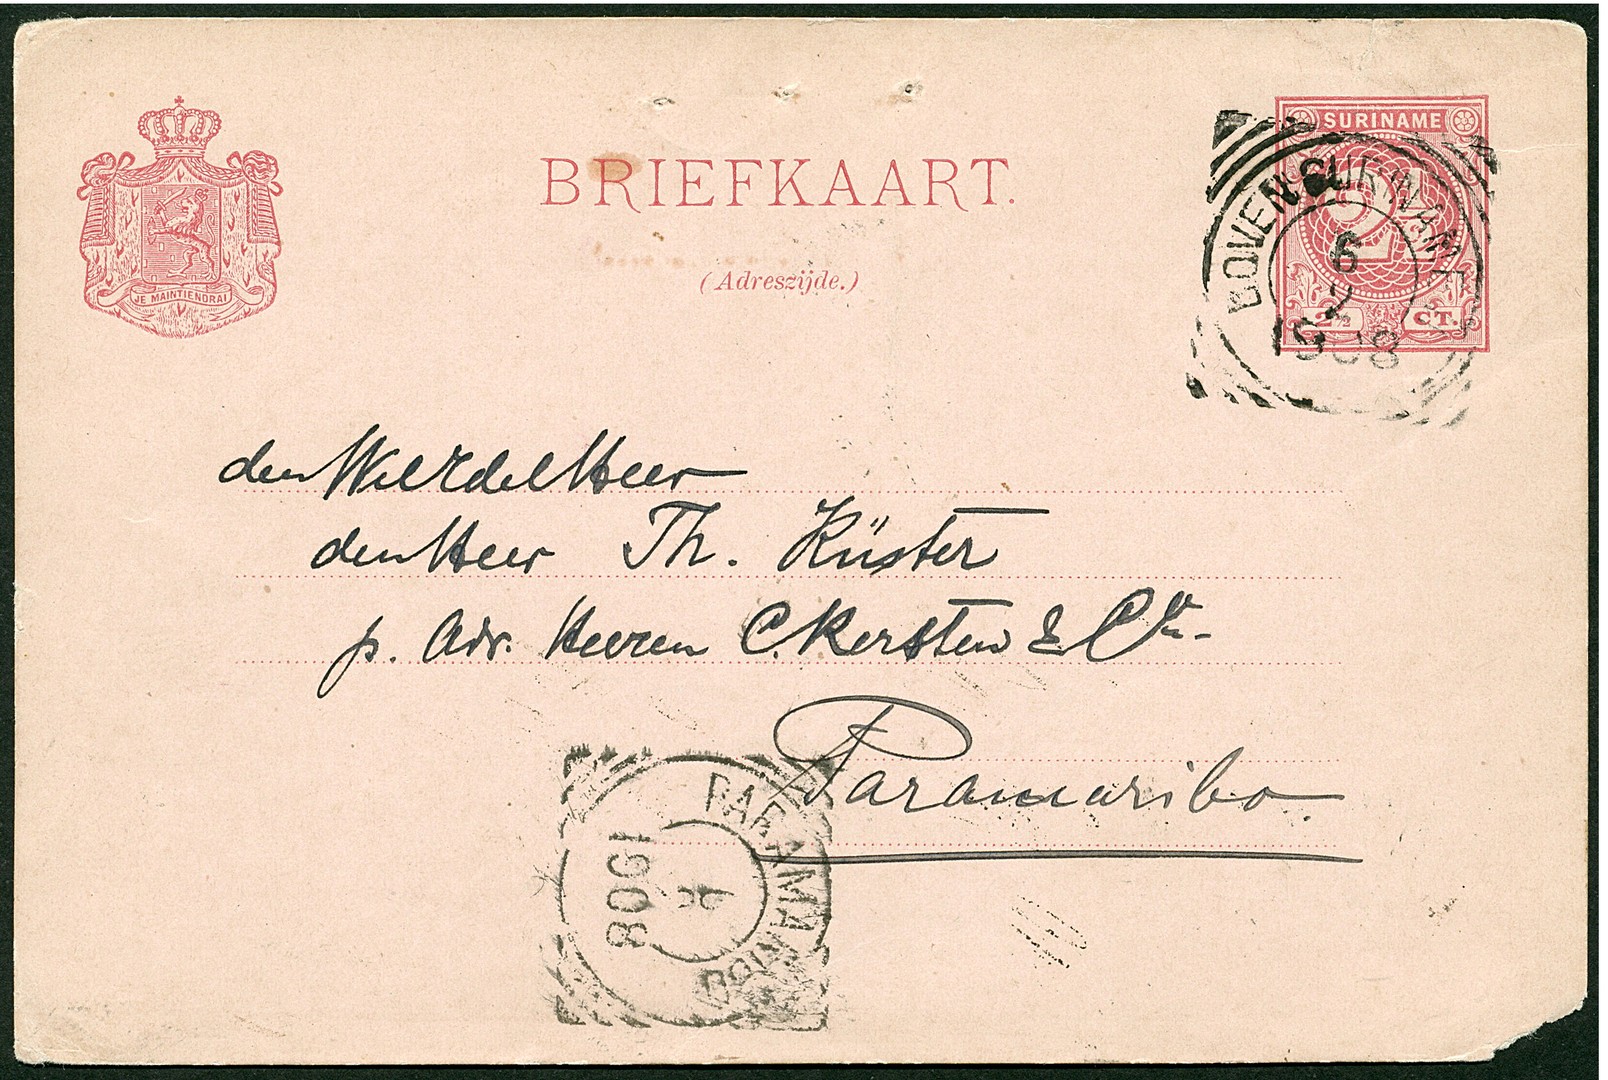 SURINAME
BRIEFKAART.
(Adreszijde.)
JE MAINTIENDRAI
2½ CT.
BOVEN SURINAME
6
2
1908
den WelEdelHeer
den Heer Th. Küster
p. Adr. Heeren C. Kersten & Co.
Paramaribo.
PARAMARIBO
1908